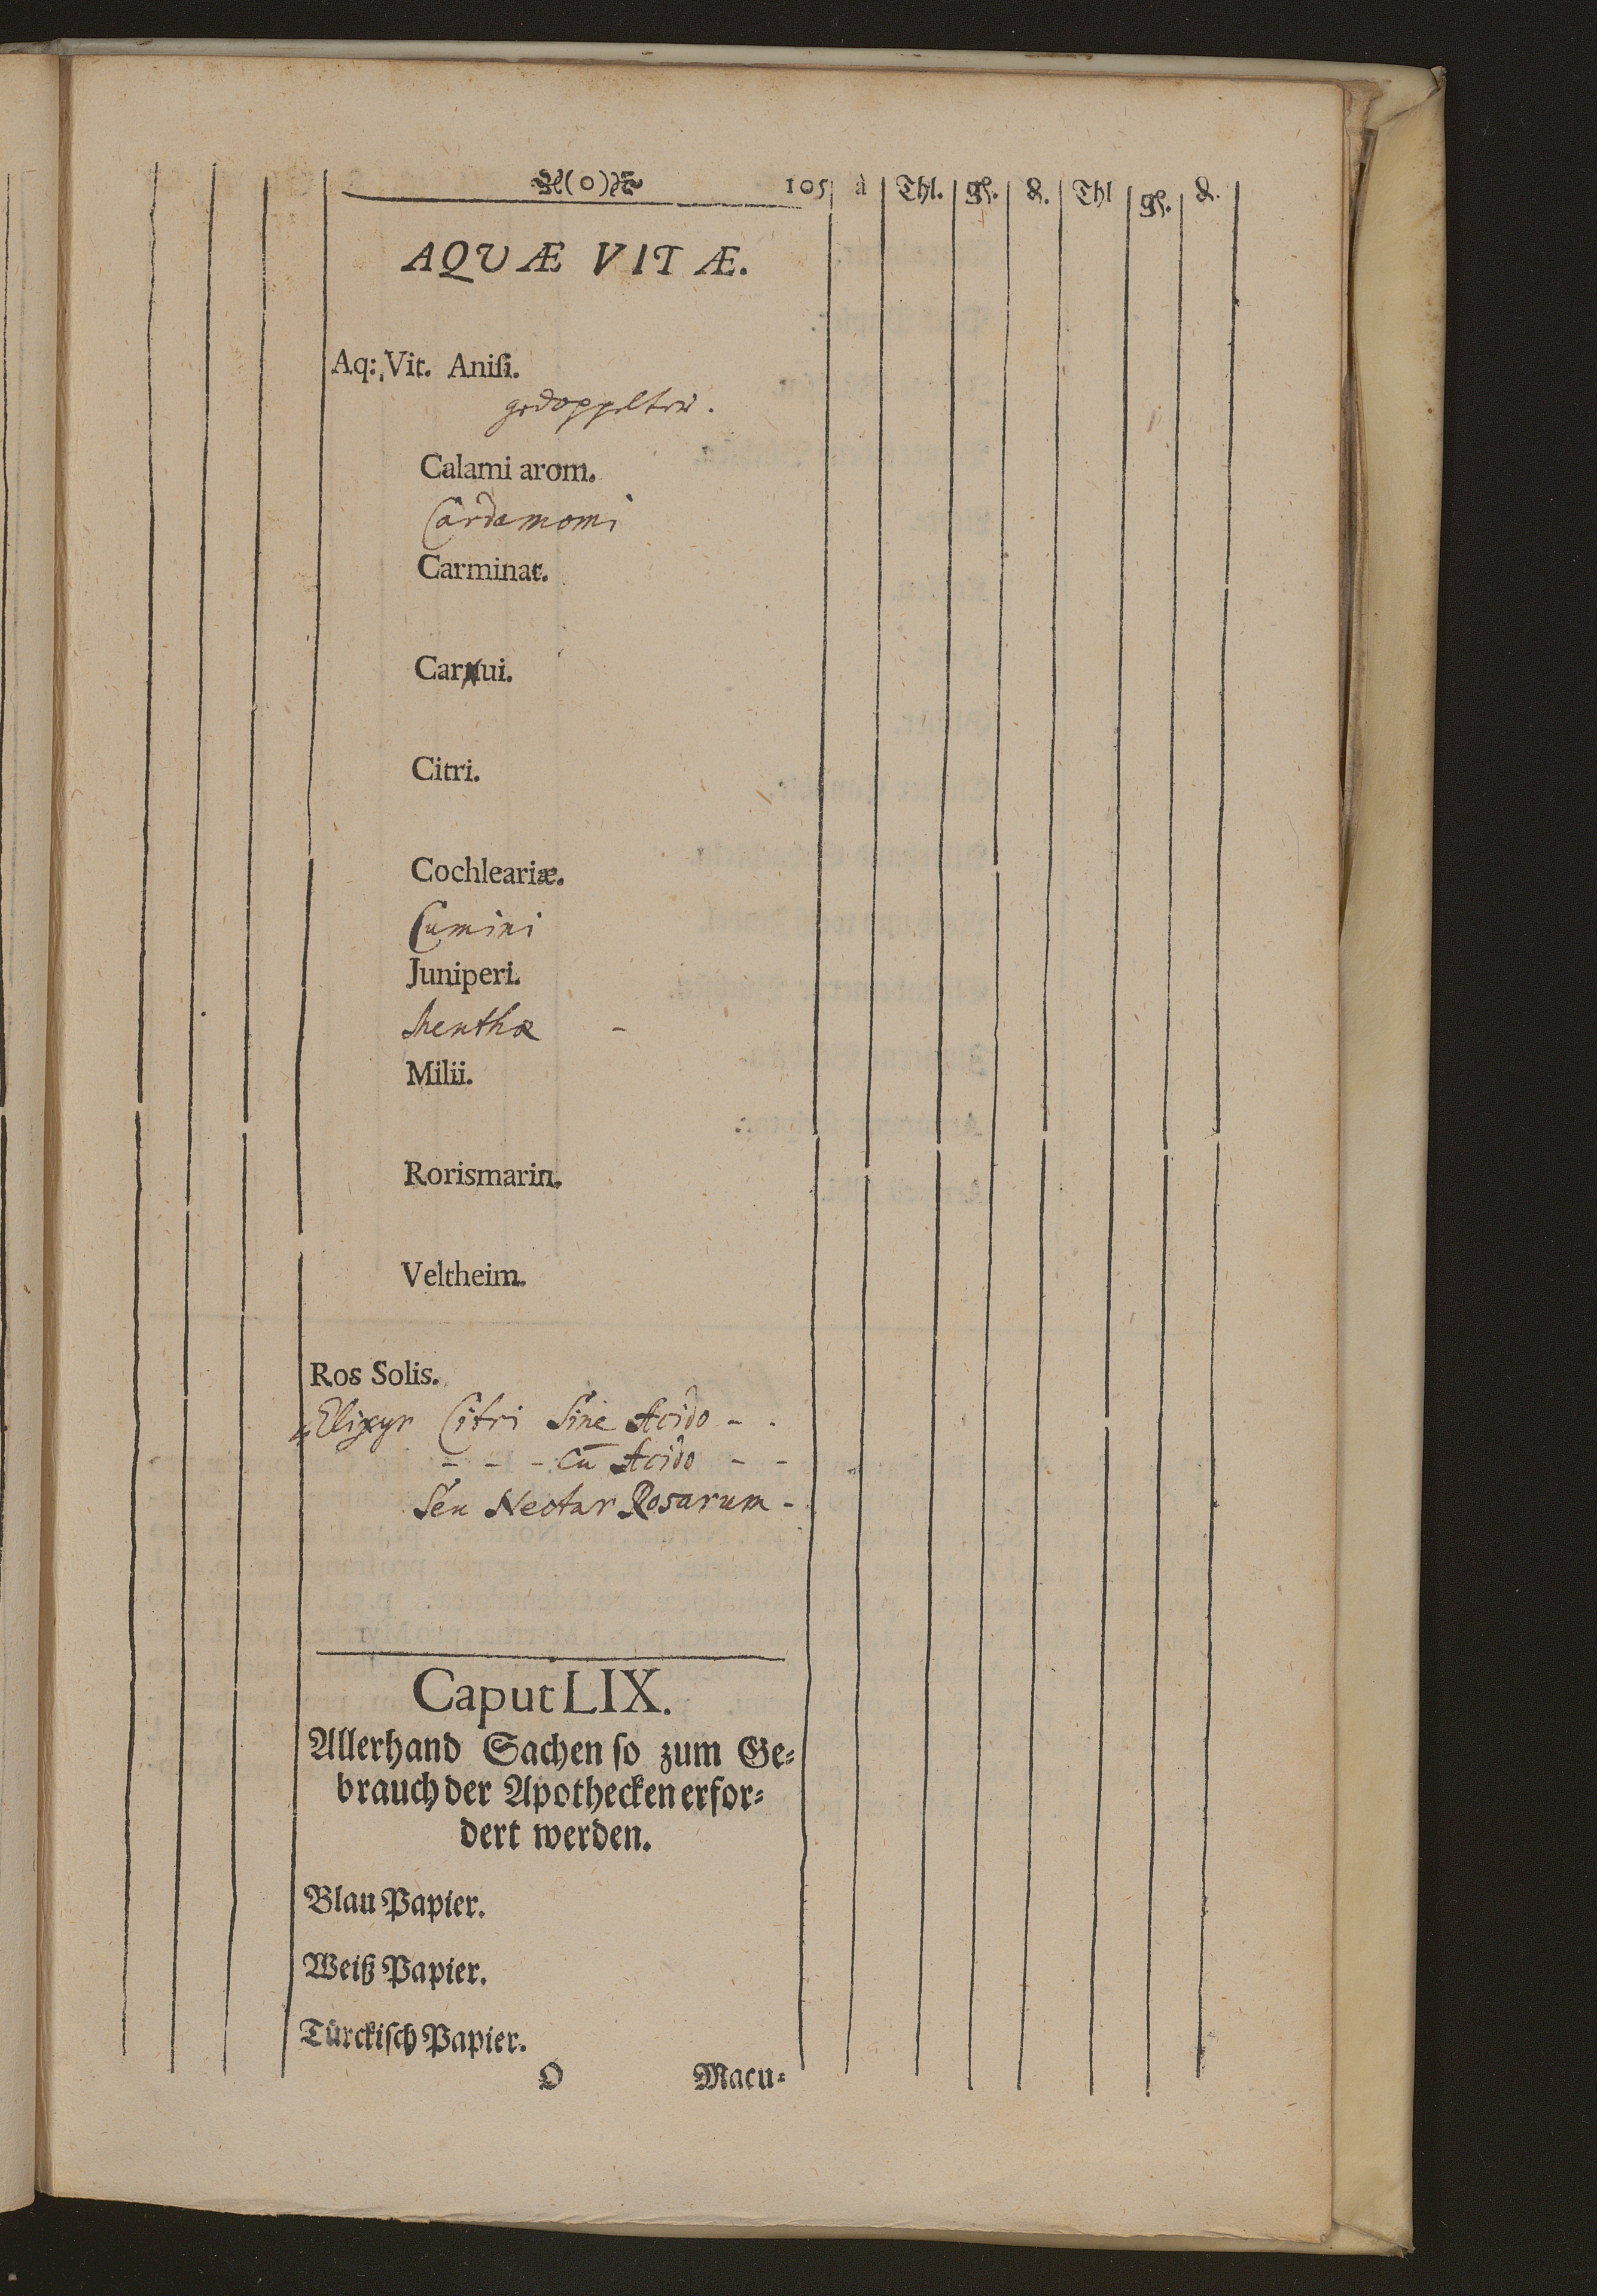 (0) 105 à Thl. gl. ₰. Thl gl. ₰.
AQUÆ VITÆ.
Aq: Vit. Aniſi.
gedoppelter.
Calami arom.
Cardamomi
Carminat.
Carui.
Citri.
Cochleariæ.
Cumini
Juniperi.
Menthæ -
Milii.
Rorismarin.
Veltheim.
Ros Solis.
Elixyr Citri Sine Acido - -
- - - cũ Acido - -
Seu Nectar Rosarum -
Caput LIX.
Allerhand Sachen ſo zum Ge⸗
brauch der Apothecken erfor⸗
dert werden.
Blau Papier.
Weiß Papier.
Türckiſch Papier.
O Macu⸗